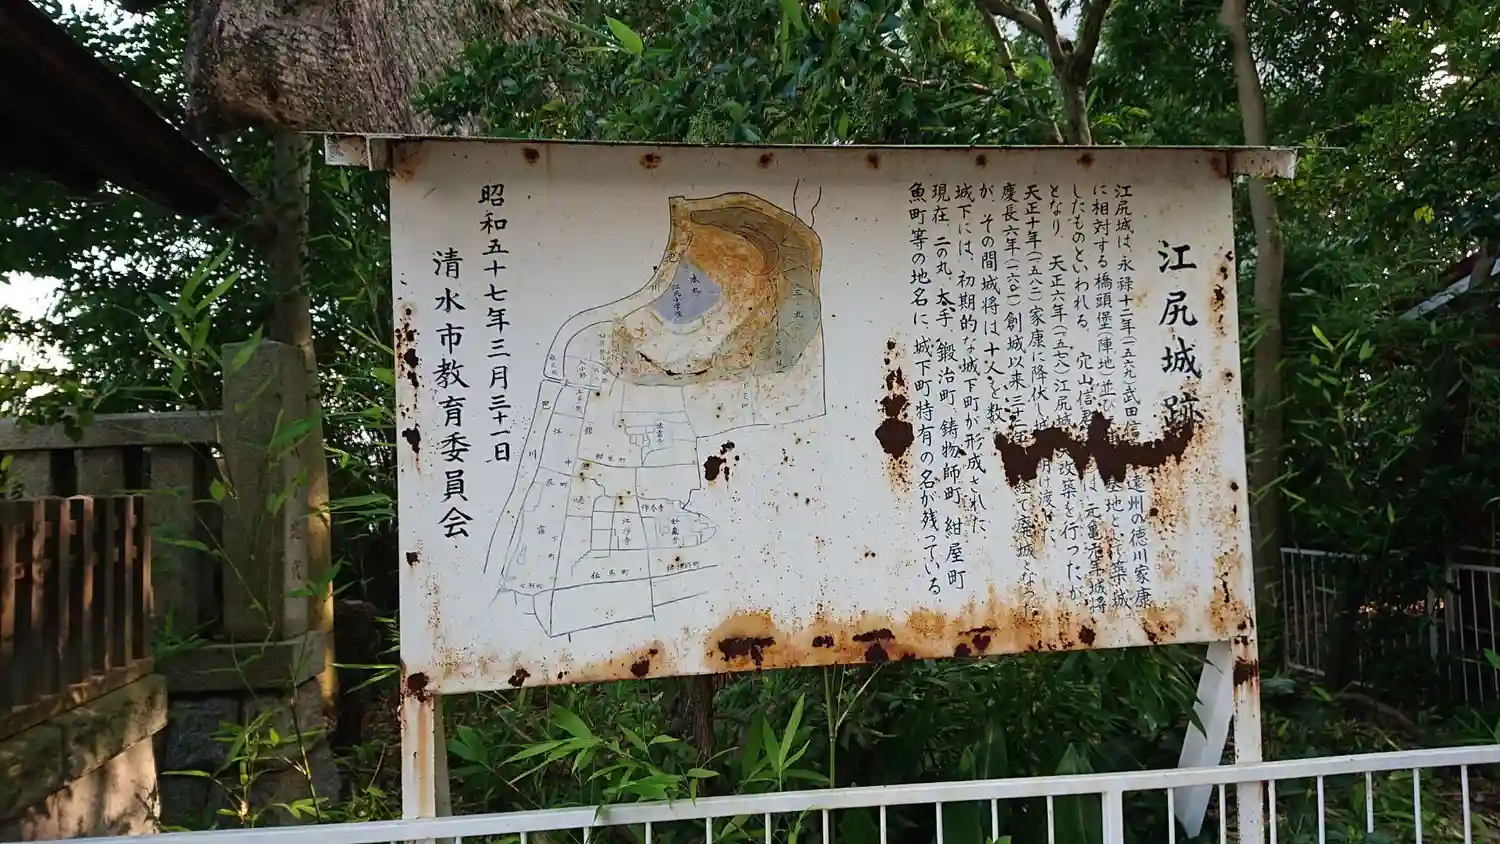 江尻城跡
江尻城は、永禄十二年(一五六九)武田信 遠州の徳川家康
に相対する橋頭堡(陣地)並び 基地として築城
したものといわれる。穴山信君 は、元亀 年城将
となり、天正六年(一五七八)江尻城 改築を行ったが、
天正十年(一五八二)家康に降伏し城 明け渡した。
慶長六年(一六〇一)創城以来三十二年 経て廃城となった
が、その間城将は十人を数
城下には、初期的な城下町が形成された。
現在、二の丸、大手、鍛冶町、鋳物師町、紺屋町
魚町等の地名に、城下町特有の名が残っている
本丸
江尻小学校
三ノ丸
巴
川
巴
川
江
尻
中
町
鋳物師町
江浄寺
妙蓮寺
伝馬町
七軒町
下町
昭和五十七年三月三十一日
清水市教育委員会